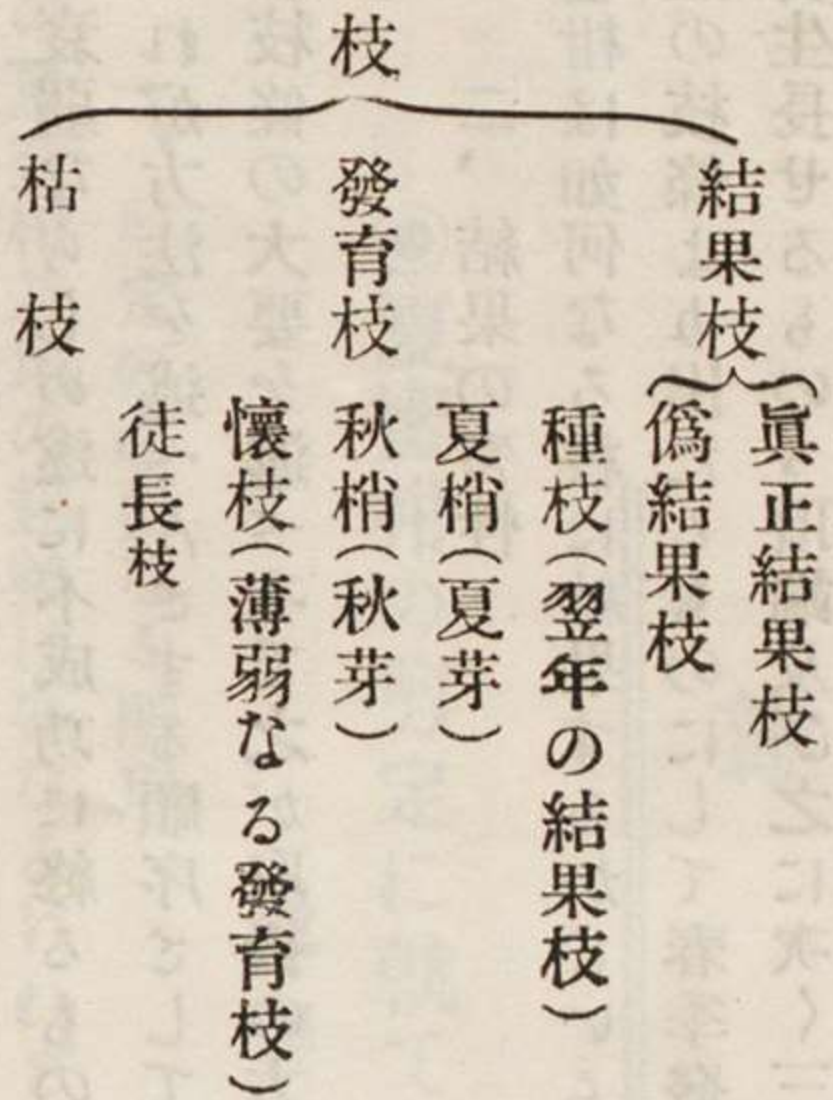 枝
結果枝
眞正結果枝
僞結果枝
發育枝
種枝(翌年の結果枝)
夏梢(夏芽)
秋梢(秋芽)
懷枝(薄弱なる發育枝)
徒長枝
枯枝